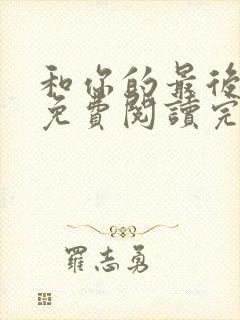 和你的最後
免費閱讀完
羅志勇